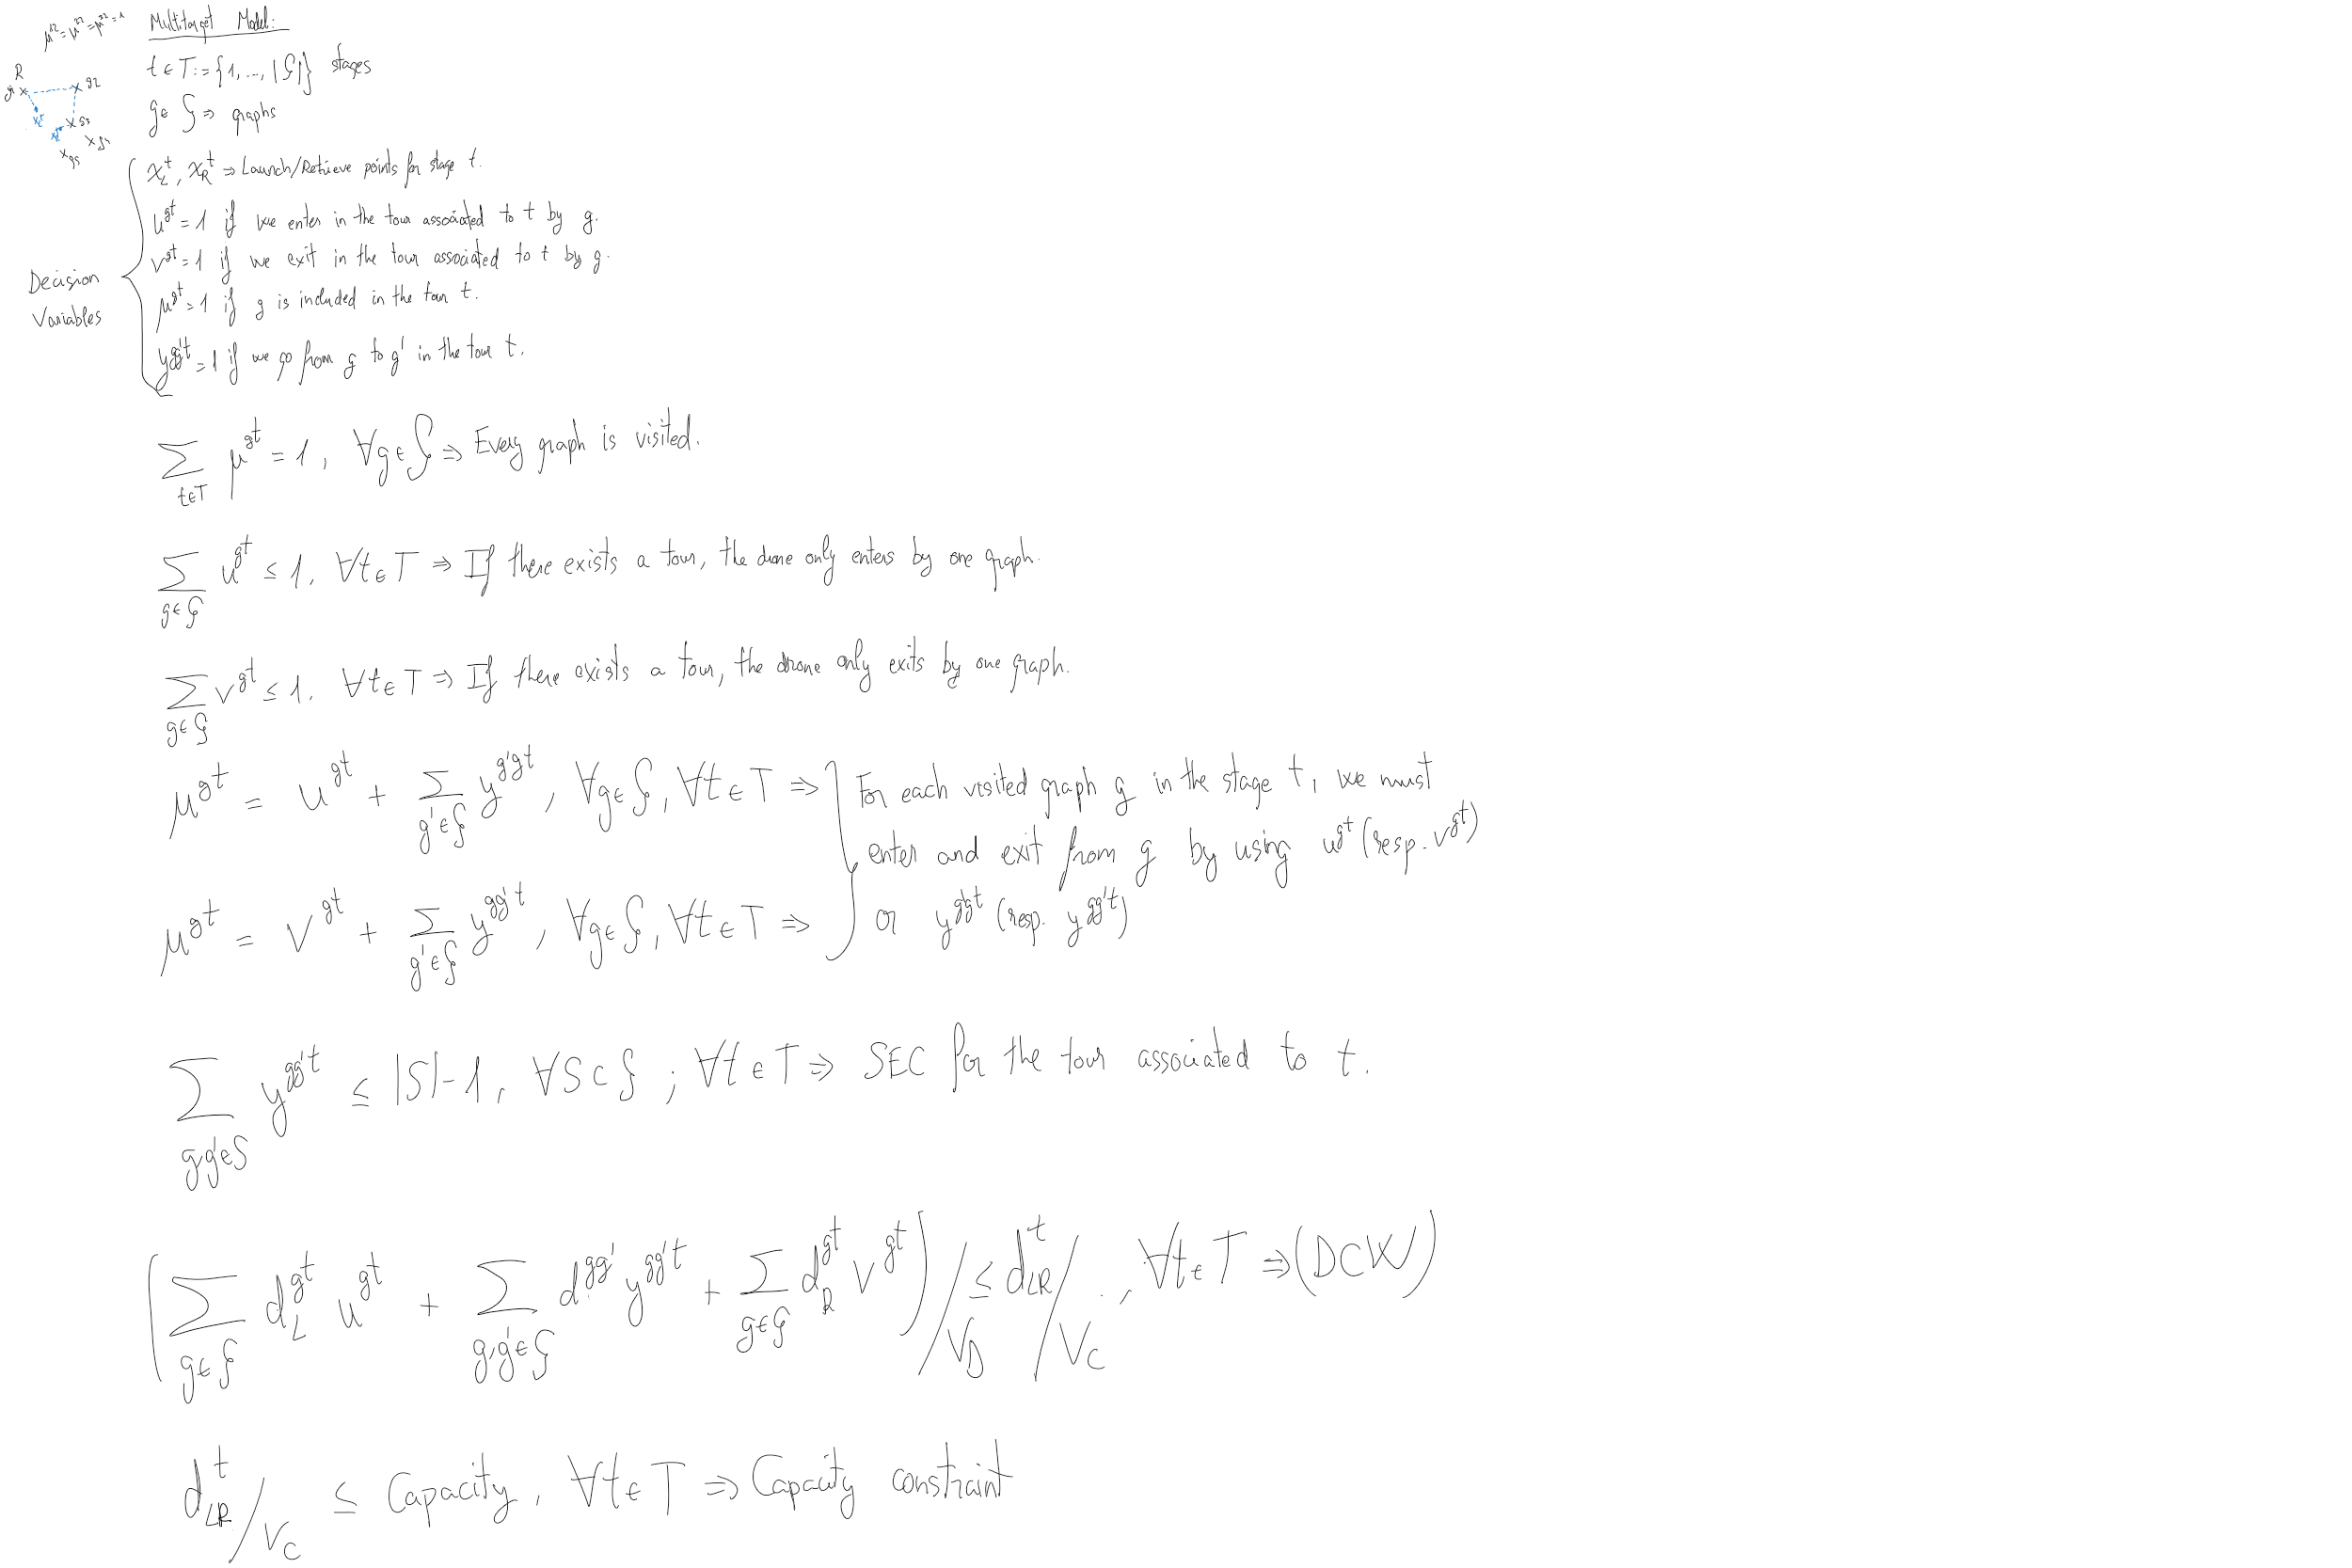 μ^{12} = μ^{22} = μ^{32} = 1
Multitarget Model:
t ∈ T := {1, ..., |𝒢|} stages
R
g1 × × g2
g ∈ 𝒢 ⇒ graphs
x_L^t × g3
x_R^t × g4
× g5
x_L^t, x_R^t ⇒ Launch/Retrieve points for stage t.
u^{gt} = 1 if we enter in the tour associated to t by g.
v^{gt} = 1 if we exit in the tour associated to t by g.
Decision
Variables
μ^{gt} = 1 if g is included in the tour t.
y^{gg't} = 1 if we go from g to g' in the tour t.
∑_{t∈T} μ^{gt} = 1, ∀g ∈ 𝒢 ⇒ Every graph is visited.
∑_{g∈𝒢} u^{gt} ≤ 1, ∀t ∈ T ⇒ If there exists a tour, the drone only enters by one graph.
∑_{g∈𝒢} v^{gt} ≤ 1, ∀t ∈ T ⇒ If there exists a tour, the drone only exits by one graph.
μ^{gt} = u^{gt} + ∑_{g'∈𝒢} y^{g'gt}, ∀g ∈ 𝒢, ∀t ∈ T ⇒
μ^{gt} = v^{gt} + ∑_{g'∈𝒢} y^{gg't}, ∀g ∈ 𝒢, ∀t ∈ T ⇒
For each visited graph g in the stage t, we must
enter and exit from g by using u^{gt} (resp. v^{gt})
or y^{g'gt} (resp. y^{gg't})
∑_{g,g'∈S} y^{gg't} ≤ |S|-1, ∀S ⊂ 𝒢; ∀t ∈ T ⇒ SEC for the tour associated to t.
(∑_{g∈𝒢} d_L^{gt} u^{gt} + ∑_{g,g'∈𝒢} d^{gg'} y^{gg't} + ∑_{g∈𝒢} d_R^{gt} v^{gt}) / V_D ≤ d_{LR}^t / V_C, ∀t ∈ T ⇒ (DCW)
d_{LR}^t / V_C ≤ Capacity, ∀t ∈ T ⇒ Capacity constraint